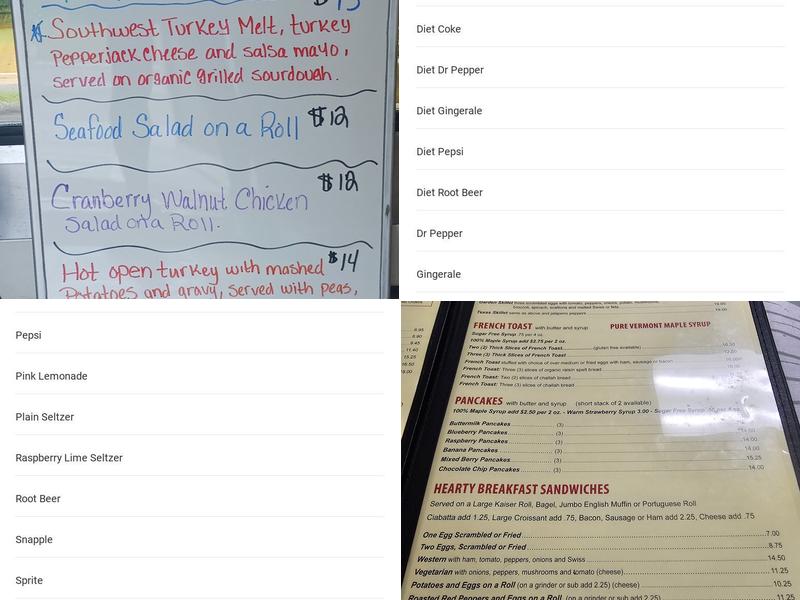 Southwest Turkey Melt, turkey
Pepperjack cheese and salsa mayo,
served on organic grilled sourdough.
Seafood Salad on a Roll $12
Cranberry Walnut Chicken $12
Salad on a Roll.
Hot open turkey with mashed $14
Potatoes and gravy, served with peas,
Diet Coke
Diet Dr Pepper
Diet Gingerale
Diet Pepsi
Diet Root Beer
Dr Pepper
Gingerale
Pepsi
Pink Lemonade
Plain Seltzer
Raspberry Lime Seltzer
Root Beer
Snapple
Sprite
6.95
8.90
9.45
11.40
15.25
16.50
Texas Skillet same as above and jalapeno peppers
FRENCH TOAST with butter and syrup PURE VERMONT MAPLE SYRUP
Sugar Free Syrup .75 per 4 oz.
100% Maple Syrup add $2.75 per 2 oz.
Two (2) Thick Slices of French Toast (gluten free available)
Three (3) Thick Slices of French Toast
French Toast stuffed with choice of over medium or fried eggs with ham, sausage or bacon
French Toast: Three (3) slices of organic raisin spelt bread
French Toast: Two (2) slices of challah bread
French Toast: Three (3) slices of challah bread
PANCAKES with butter and syrup (short stack of 2 available)
100% Maple Syrup add $2.50 per 2 oz. - Warm Strawberry Syrup 3.00 - Sugar Free Syrup
Buttermilk Pancakes (3)
Blueberry Pancakes (3)
Raspberry Pancakes (3) 14.00
Banana Pancakes (3) 14.00
Mixed Berry Pancakes (3) 15.25
Chocolate Chip Pancakes (3) 14.00
HEARTY BREAKFAST SANDWICHES
Served on a Large Kaiser Roll, Bagel, Jumbo English Muffin or Portuguese Roll
Ciabatta add 1.25, Large Croissant add .75, Bacon, Sausage or Ham add 2.25, Cheese add .75
One Egg Scrambled or Fried 7.00
Two Eggs, Scrambled or Fried 8.75
Western with ham, tomato, peppers, onions and Swiss 14.50
Vegetarian with onions, peppers, mushrooms and tomato (cheese) 11.25
Potatoes and Eggs on a Roll (on a grinder or sub add 2.25) (cheese) 10.25
Roasted Red Peppers and Eggs on a Roll (on a grinder or sub add 2.25) 11.25